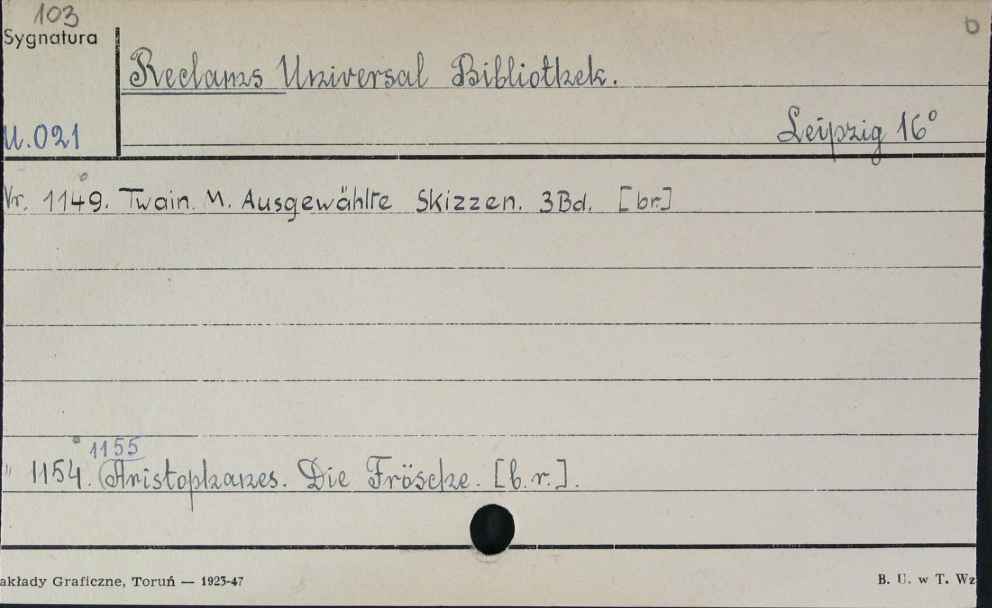 103
b
Sygnatura
Reclams Universal Bibliothek.
U.021
Leipzig 16°
Nr. 1149. Twain. M. Ausgewählte Skizzen. 3Bd. [br.]
1155
" 1154. Aristophanes. Die Frösche. [b.r.].
akłady Graficzne, Toruń — 1923-47
B. U. w T. Wz